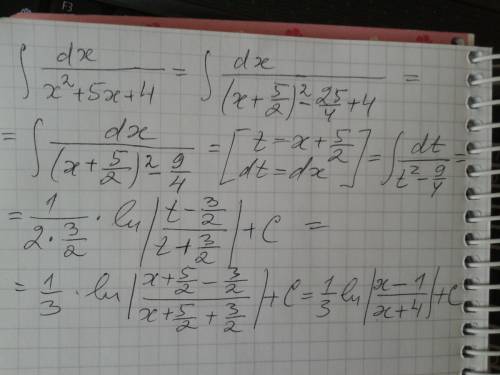 ∫ dx/(x²+5x+4) = ∫ dx/((x+5/2)²-25/4+4) =
= ∫ dx/((x+5/2)²-9/4) = [t=x+5/2 dt=dx] = ∫ dt/(t²-9/4) =
= 1/(2·3/2) · ln|(t-3/2)/(t+3/2)|+C =
= 1/3 · ln|(x+5/2-3/2)/(x+5/2+3/2)|+C = 1/3 ln|(x-1)/(x+4)|+C